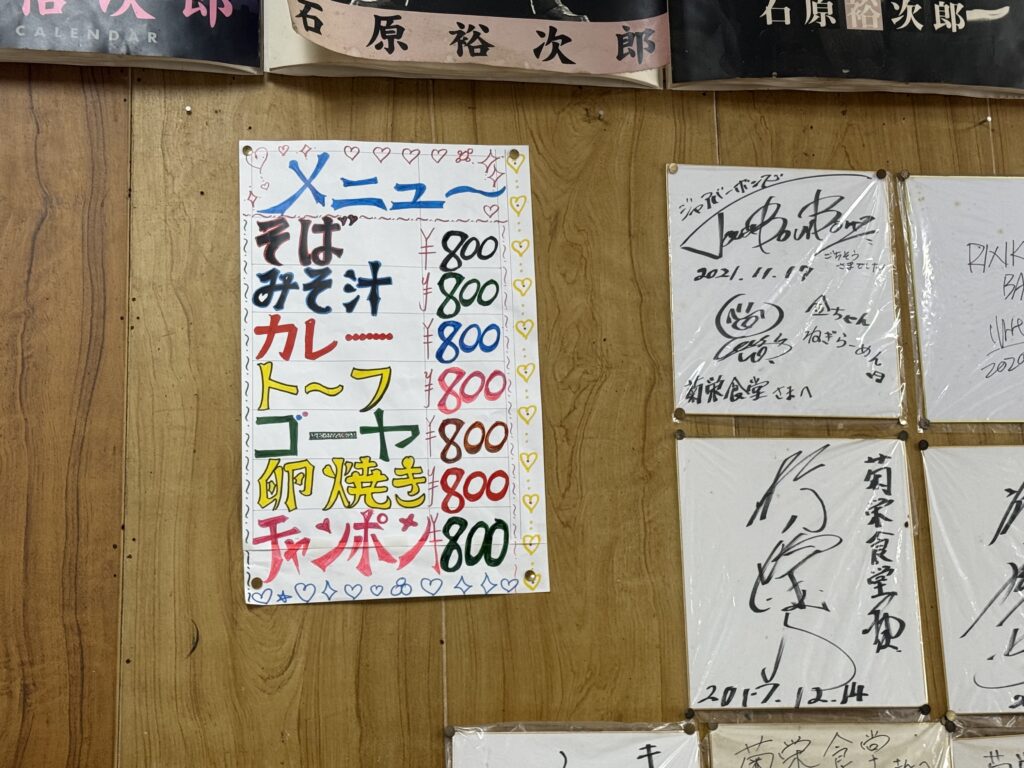 裕次郎
CALENDAR
石原裕次郎
石原裕次郎
メニュ〜
そば ¥800
みそ汁 ¥800
カレー ¥800
ト〜フ ¥800
ゴーヤ ¥800
卵焼き ¥800
チャンポン ¥800
ジャアバーボンズ
ごちそう
さまでした
2021.11.17
金ちゃん
ねぎらーめん
菊栄食堂さまへ
2020
菊栄食堂
2017.12.14
菊栄食堂さんへ